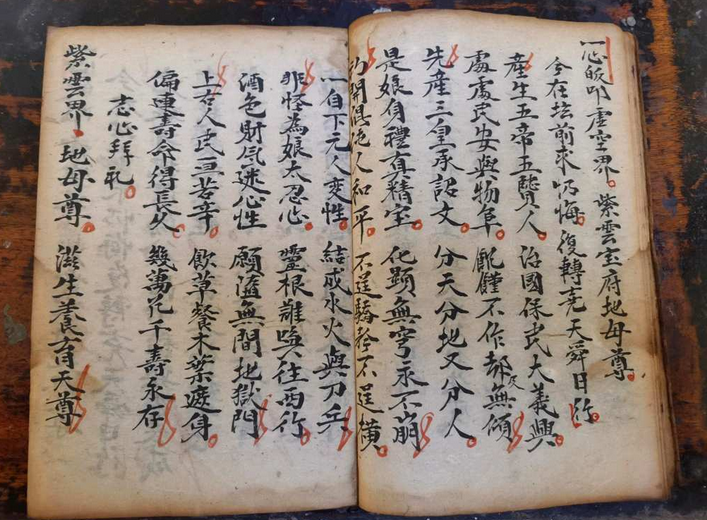 一心皈叩虛空界。紫雲宝府地母尊。
今在坛前求忏悔。復轉堯天舜日行
產生五帝五賢人。治國保民大義興
處處民安與物阜。飢饉不作却無傾
先產三皇承詔文。分天分地又分人
是娘身體真精宝。化顕無穷永不崩
開俱使人和平。不逞驕矜不逞橫
一自下元人变性。結成水火與刀兵
非怪為娘太忍心。靈根難與往西行
酒色財氣迷心性。願滿無間地獄門
上古人民亘苦辛。飲草餐木葉遮身
偏連壽命得長久。幾萬花干壽永存
志心拜礼。
紫雲界。地母尊。滋生養育天尊